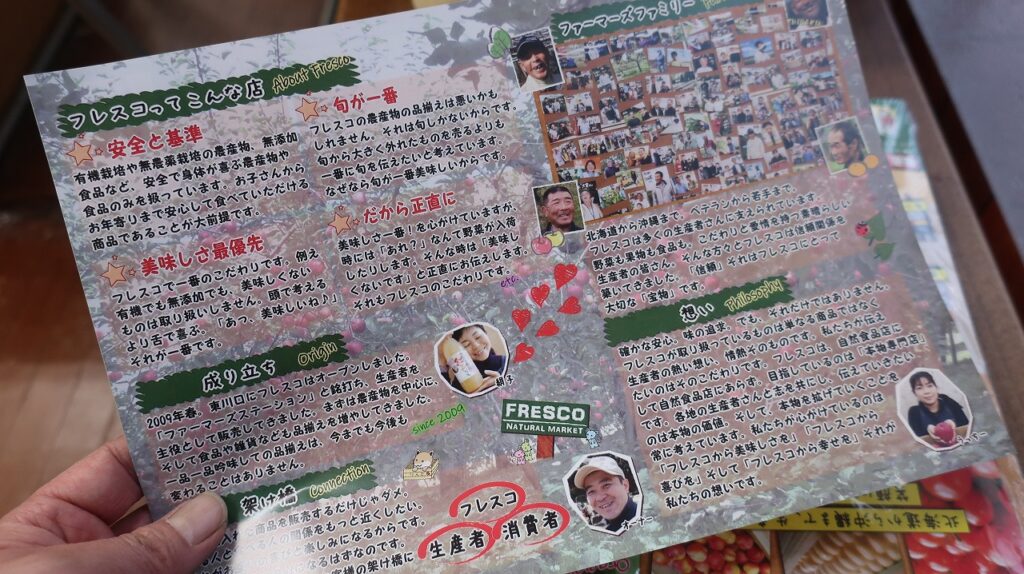 フレスコってこんな店 About Fresco
安全と基準
有機栽培や無農薬栽培の農産物、無添加
食品など、安全で身体が喜ぶ農産物や
食品のみを扱っています。お子さんから
お年寄りまで安心して食べていただける
商品であることが大前提です。
美味しさ最優先
フレスコで一番のこだわりです。例え
有機でも無添加でも、美味しくない
ものは取り扱いしません。頭で考える
より舌で喜ぶ。「あっ、美味しいね♪」
それが一番です。
旬が一番
フレスコの農産物の品揃えは悪いかも
しれません。それは旬しかないからです。
旬から大きく外れたものを売るよりも
一番に旬を伝えたいと考えています。
なぜなら旬が一番美味しいからです。
だから正直に
美味しさ一番！を心がけていますが、
時には「あれ？」なんて野菜が入荷
したりします。そんな時は「美味し
くないです」と正直にお伝えします。
それもフレスコのこだわりです。
etc.
成り立ち Origin
2009年春、東川口にフレスコはオープンしました。
「ファーマーズステーション」と銘打ち、生産者を
主役として販売してきました。まずは農産物を中心に、
そして食品や雑貨なども品揃えを増やしてきました。
一品一品吟味しての品揃えは、今までも今後も
変わることはありません。
since 2009
架け橋 Connection
商品を販売するだけじゃダメ。
人の関係をもっと近くしたい。
楽しみになるはずなのです。
客様の架け橋に
FRESCO
NATURAL MARKET
フレスコ
生産者
消費者
オーナー
ファーマーズファミリー
北海道から沖縄まで、ベテランから若手まで、
フレスコは多くの生産者さんに支えられています。
野菜も果物も食品も、こだわりと愛情を持つ素晴らしい
生産者の皆さん。そんな方々とフレスコは信頼関係を
築いてきました。「信頼」それはフレスコにとって
大切な「宝物」です。
想い Philosophy
確かな安心、味の追求。でも、それだけではありません。
フレスコが取り扱っているものは単なる商品ではなく
生産者の熱い想い、情熱そのものです。私たちが伝え
たいのはそのこだわりです。フレスコは、自然食品店に
して自然食品店にあらず。目指しているのは「本物専門店」
です。各地の生産者さんと志を共にし、伝えていきたい
のは本物の価値。そして、本物を拡げていくことを
常に考えています。私たちが心がけているのは
「フレスコから美味しさを」「フレスコから
喜びを」そして「フレスコから幸せを」それが
私たちの想いです。
北海道から沖縄まで、生
笑顔